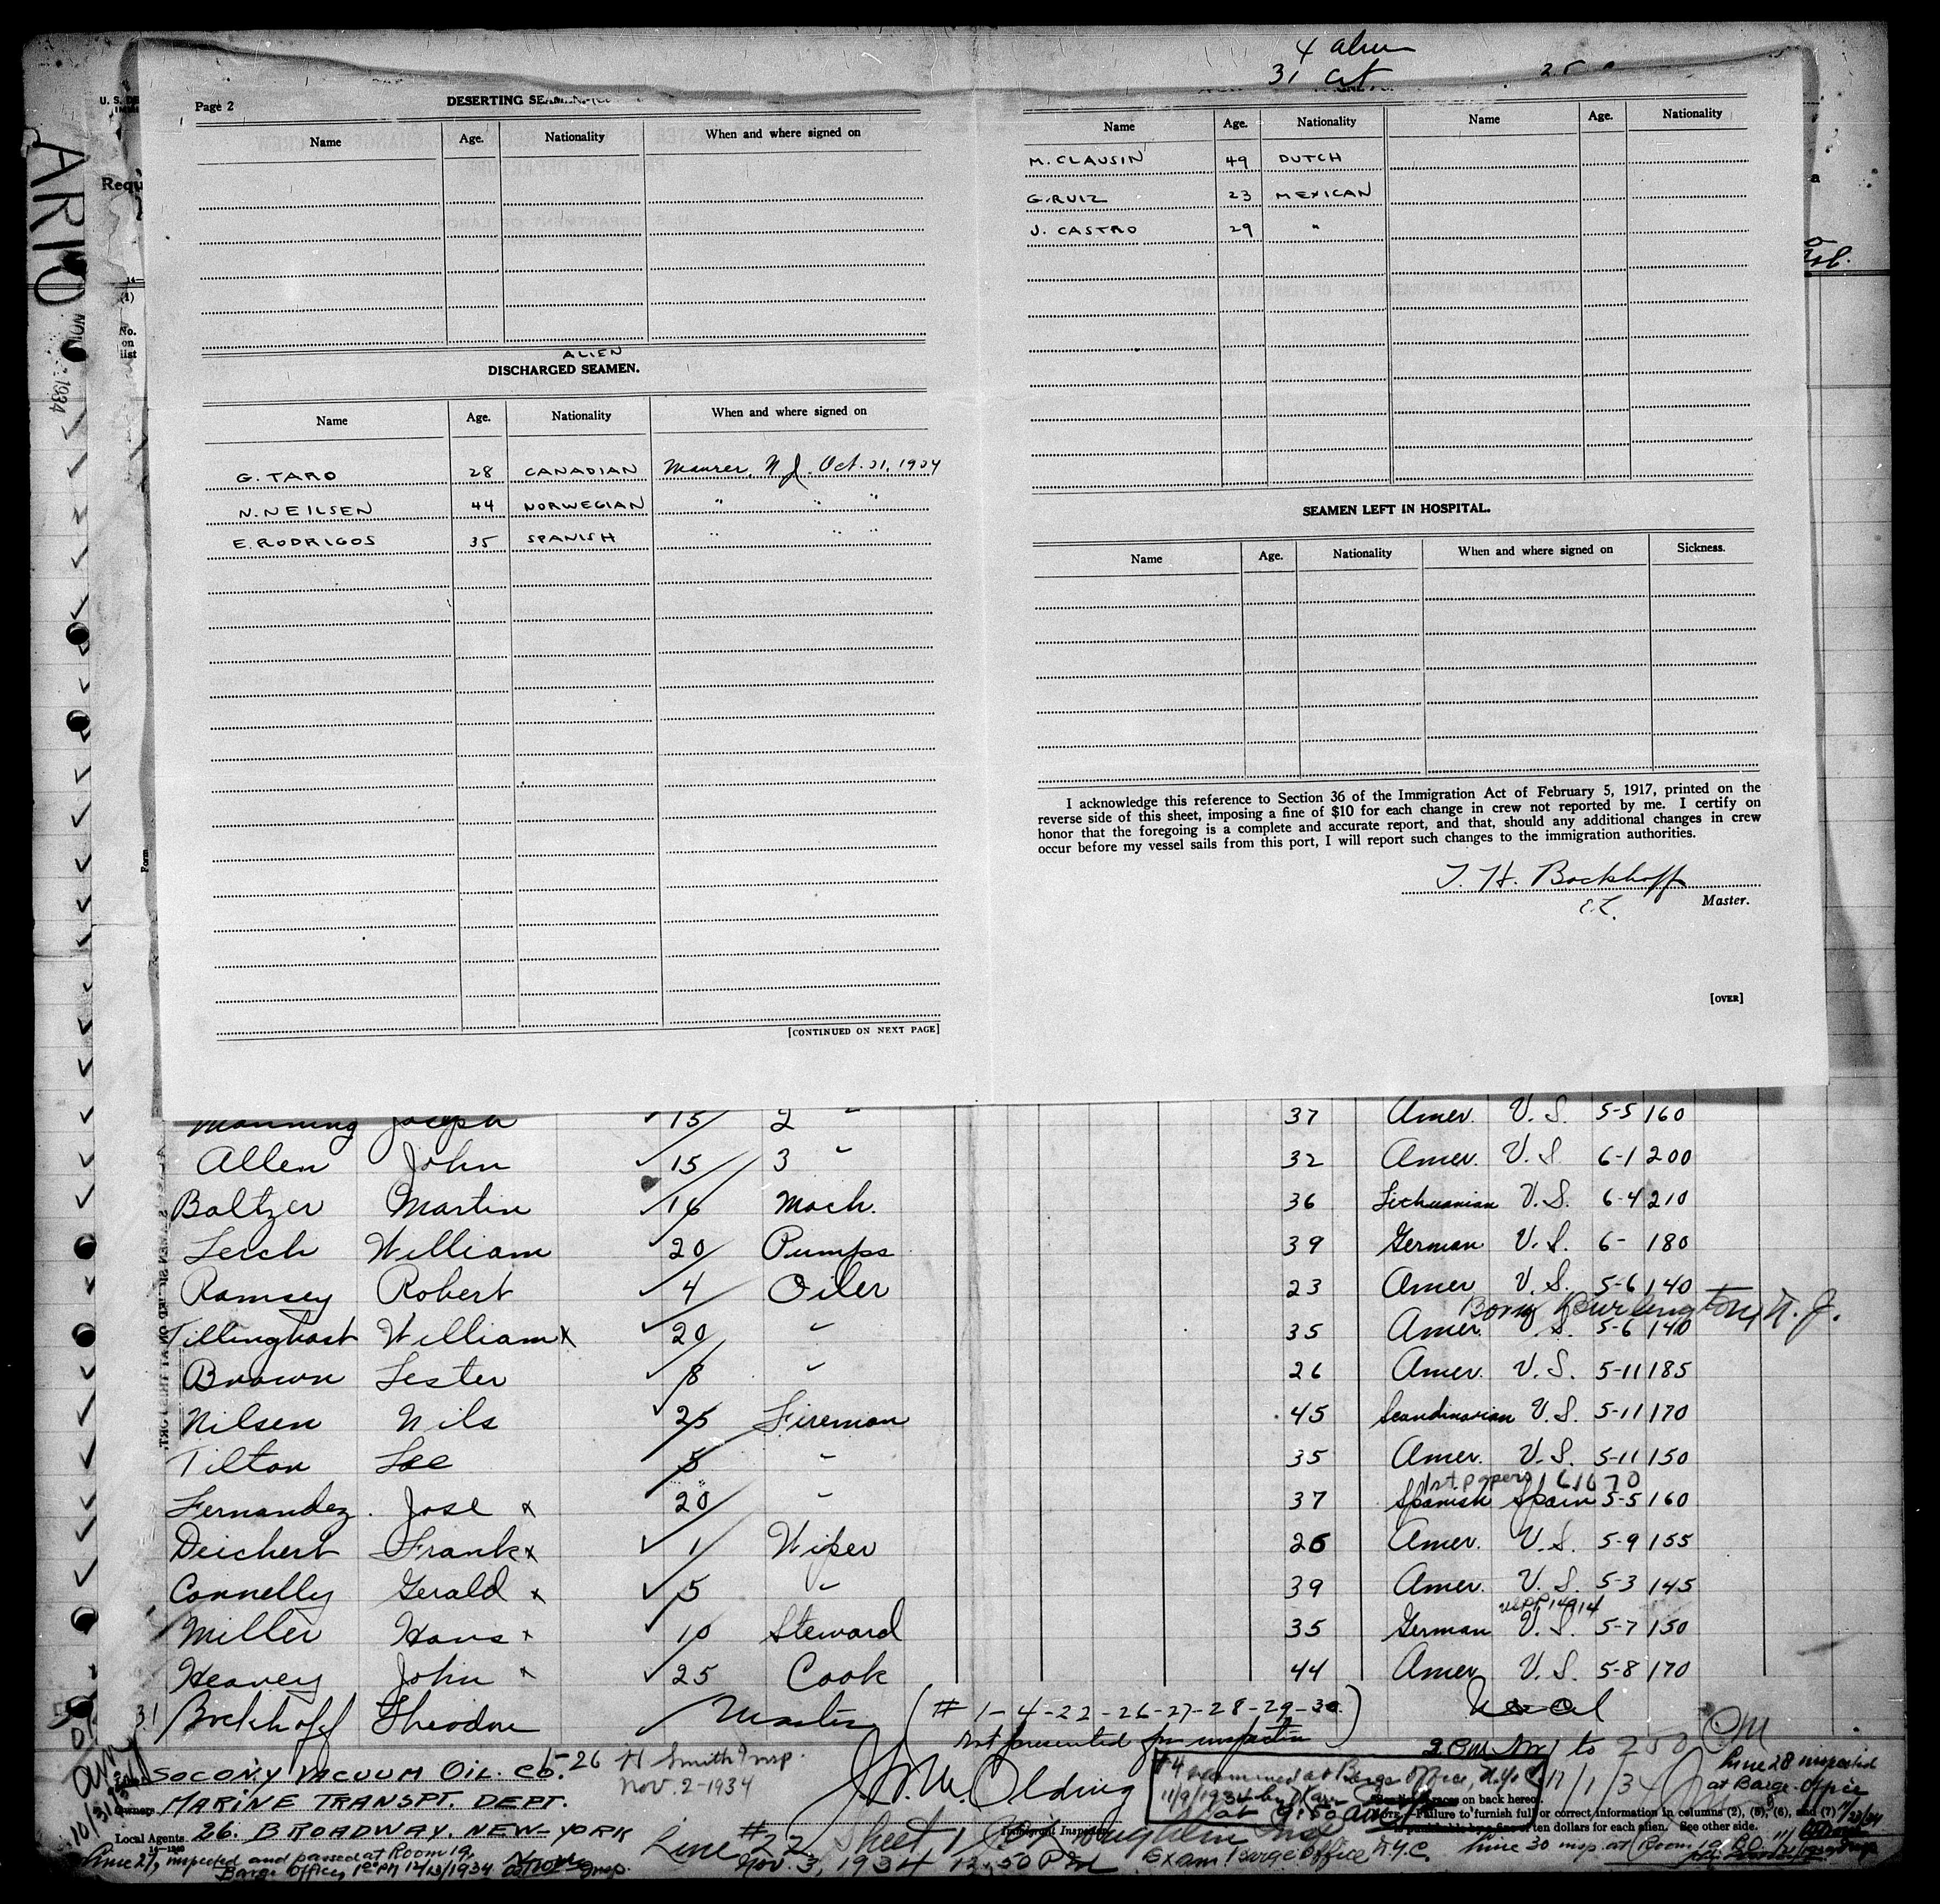 4 alien
31 Cit
U. S. DE
Page 2
DESERTING SEAMEN
Name Age. Nationality When and where signed on
Name Age. Nationality Name Age. Nationality
M. CLAUSIN 49 DUTCH
G. RUIZ 23 MEXICAN
J. CASTRO 29 "
ARIO
Requ
(1)
No. on list
1934
ALIEN
DISCHARGED SEAMEN.
Name Age. Nationality When and where signed on
G. TARO 28 CANADIAN Maurer, N J. Oct. 21, 1934
N. NEILSEN 44 NORWEGIAN " " "
E. RODRIGOS 35 SPANISH " " "
[CONTINUED ON NEXT PAGE]
SEAMEN LEFT IN HOSPITAL.
Name Age. Nationality When and where signed on Sickness.
I acknowledge this reference to Section 36 of the Immigration Act of February 5, 1917, printed on the
reverse side of this sheet, imposing a fine of $10 for each change in crew not reported by me. I certify on
honor that the foregoing is a complete and accurate report, and that, should any additional changes in crew
occur before my vessel sails from this port, I will report such changes to the immigration authorities.
T. H. Bockhoff
Master.
[OVER]
Form
Manning Joseph 15 2 " 37 Amer. U. S. 5-5 160
Allen John 15 3 " 32 Amer. U. S. 6-1 200
Baltzer Martin 16 Mach. 36 Lithuanian U. S. 6-4 210
Lerch William 20 Pumps 39 German U. S. 6- 180
Ramsey Robert 4 Oiler 23 Amer U. S. 5-6 140
Born Burlington, N. J.
Tillinghast William x 20 " 35 Amer. U. S. 5-6 140
Brown Lester 8 " 26 Amer. U. S. 5-11 185
Nilsen Nils 25 Fireman 45 Scandinavian U. S. 5-11 170
Tilton Lee 5 " 35 Amer. U. S. 5-11 150
1st papers 61670
Fernandez Jose x 20 " 37 Spanish Spain 5-5 160
Deichert Frank x 1 Wiper 26 Amer. U. S. 5-9 155
Connelly Gerald x 5 " 39 Amer. U. S. 5-3 145
Miller Hans x 10 Steward 35 German U. S. 5-7 150
Heavey John x 25 Cook 44 Amer U. S. 5-8 170
31 Bockhoff Theodore Master (# 1-4-22-26-27-28-29-30)
not presented for inspection
SOCONY VACUUM OIL. CO. 26 H Smith Insp.
Nov. 2-1934
Owners MARINE TRANSPT. DEPT.
Local Agents. 26. BROADWAY. NEW-YORK
10/31/34
#4 examined at Barge Office, N.Y.C.
11/9/1934 by
at 9:50 am
11/1/34
Line 28 inspected
at Barge Office
on back hereof.
NOTE.—Failure to furnish full or correct information in columns (2), (5), (6), and (7)
ten dollars for each alien. See other side.
Immigrant Inspector.
Line #22 Sheet 1
Nov. 3, 1934 12.50 P.M. Exam. Barge Office N.Y.C.
Line 27, inspected and passed at Room 19,
Barge Office, 12/13/1934 Insp.
Line 30 insp. at Room 19 BO